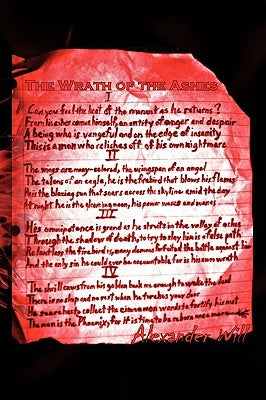 The Wrath of the Ashes
I
Can you feel the heat of the remnant as he returns?
From his ashes comes himself, an entity of anger and despair
A being who is vengeful and on the edge of insanity
This is a man who reliches off of his own nightmare
II
The wings are many-colored, the wingspan of an angel
The talons of an eagle, he is the firebird that blows his flames
He is the blazing sun that soars across the skyline amid the day
At night he is the gleaming moon, his power waxes and wanes
III
His omnipotence is grand as he struts in the valley of ashes
Through the shadow of death, to try to slay him is a false path
Relentless, the firebird is, many damned he ruled the battle against him
And the only sin he could ever be accountable for is his own wrath
IV
The shrill caws from his golden beak me enough to wake the dead
There is no sleep and no rest when he torches your door
He soars hests to collect the cinnamon wands to fortify his nest
The man is the Phoenix, for it is time to be born once more
Alexander Will